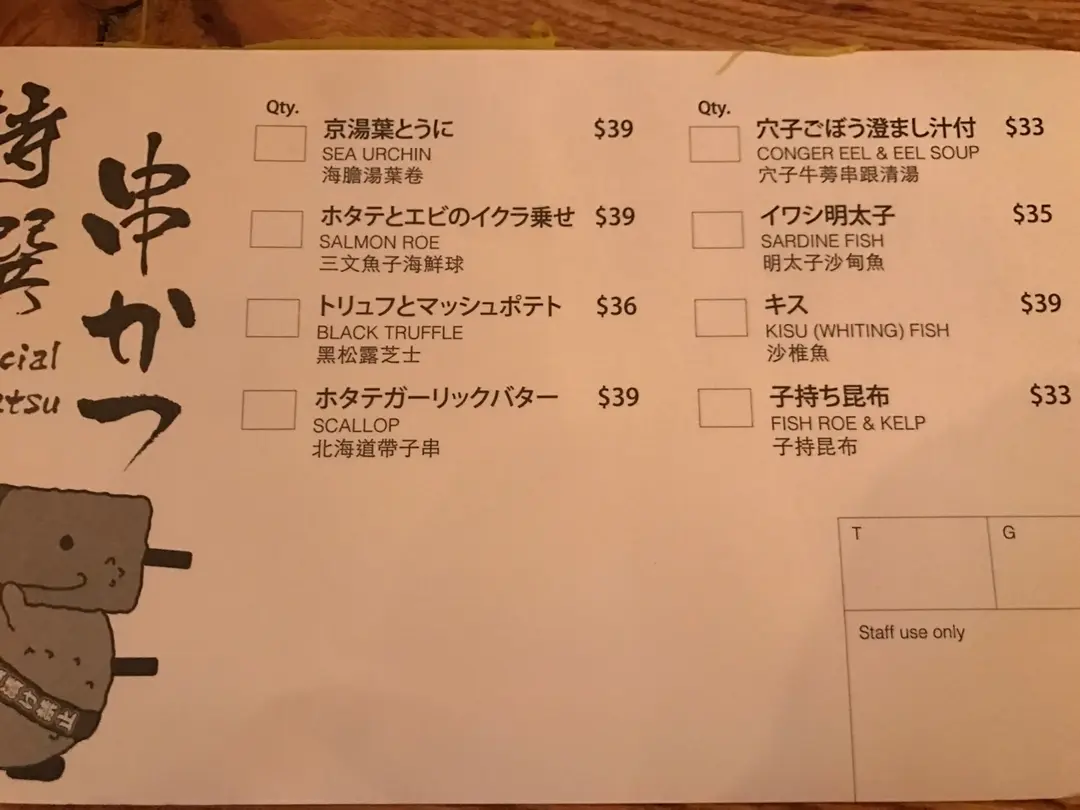 特
撰
串かつ
cial
atsu
Qty.
京湯葉とうに $39
SEA URCHIN
海膽湯葉卷
ホタテとエビのイクラ乗せ $39
SALMON ROE
三文魚子海鮮球
トリュフとマッシュポテト $36
BLACK TRUFFLE
黑松露芝士
ホタテガーリックバター $39
SCALLOP
北海道帶子串
Qty.
穴子ごぼう澄まし汁付 $33
CONGER EEL & EEL SOUP
穴子牛蒡串跟清湯
イワシ明太子 $35
SARDINE FISH
明太子沙甸魚
キス $39
KISU (WHITING) FISH
沙椎魚
子持ち昆布 $33
FISH ROE & KELP
子持昆布
T
G
Staff use only
漬け禁止